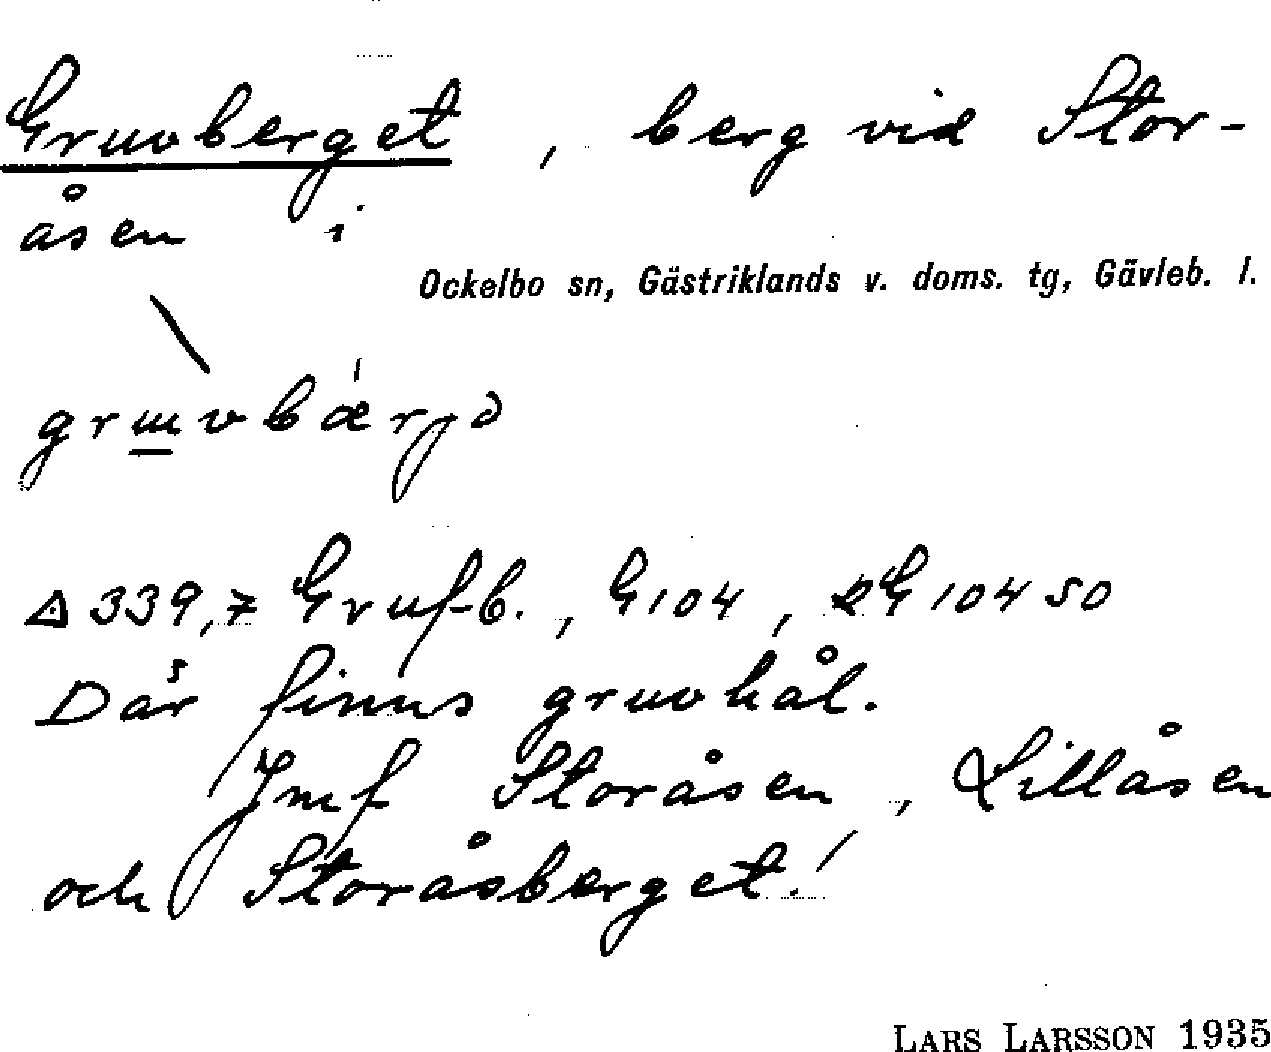 Gruvberget, berg vid Stor-
åsen i
Ockelbo sn, Gästriklands v. doms. tg, Gävleb. l.
\
grɯvbǽrjə
△ 339,7 Grufb., G104, RG 104 50
Där finns gruvhål.
Jmf Storåsen, Lillåsen
och Storåsberget!
LARS LARSSON 1935